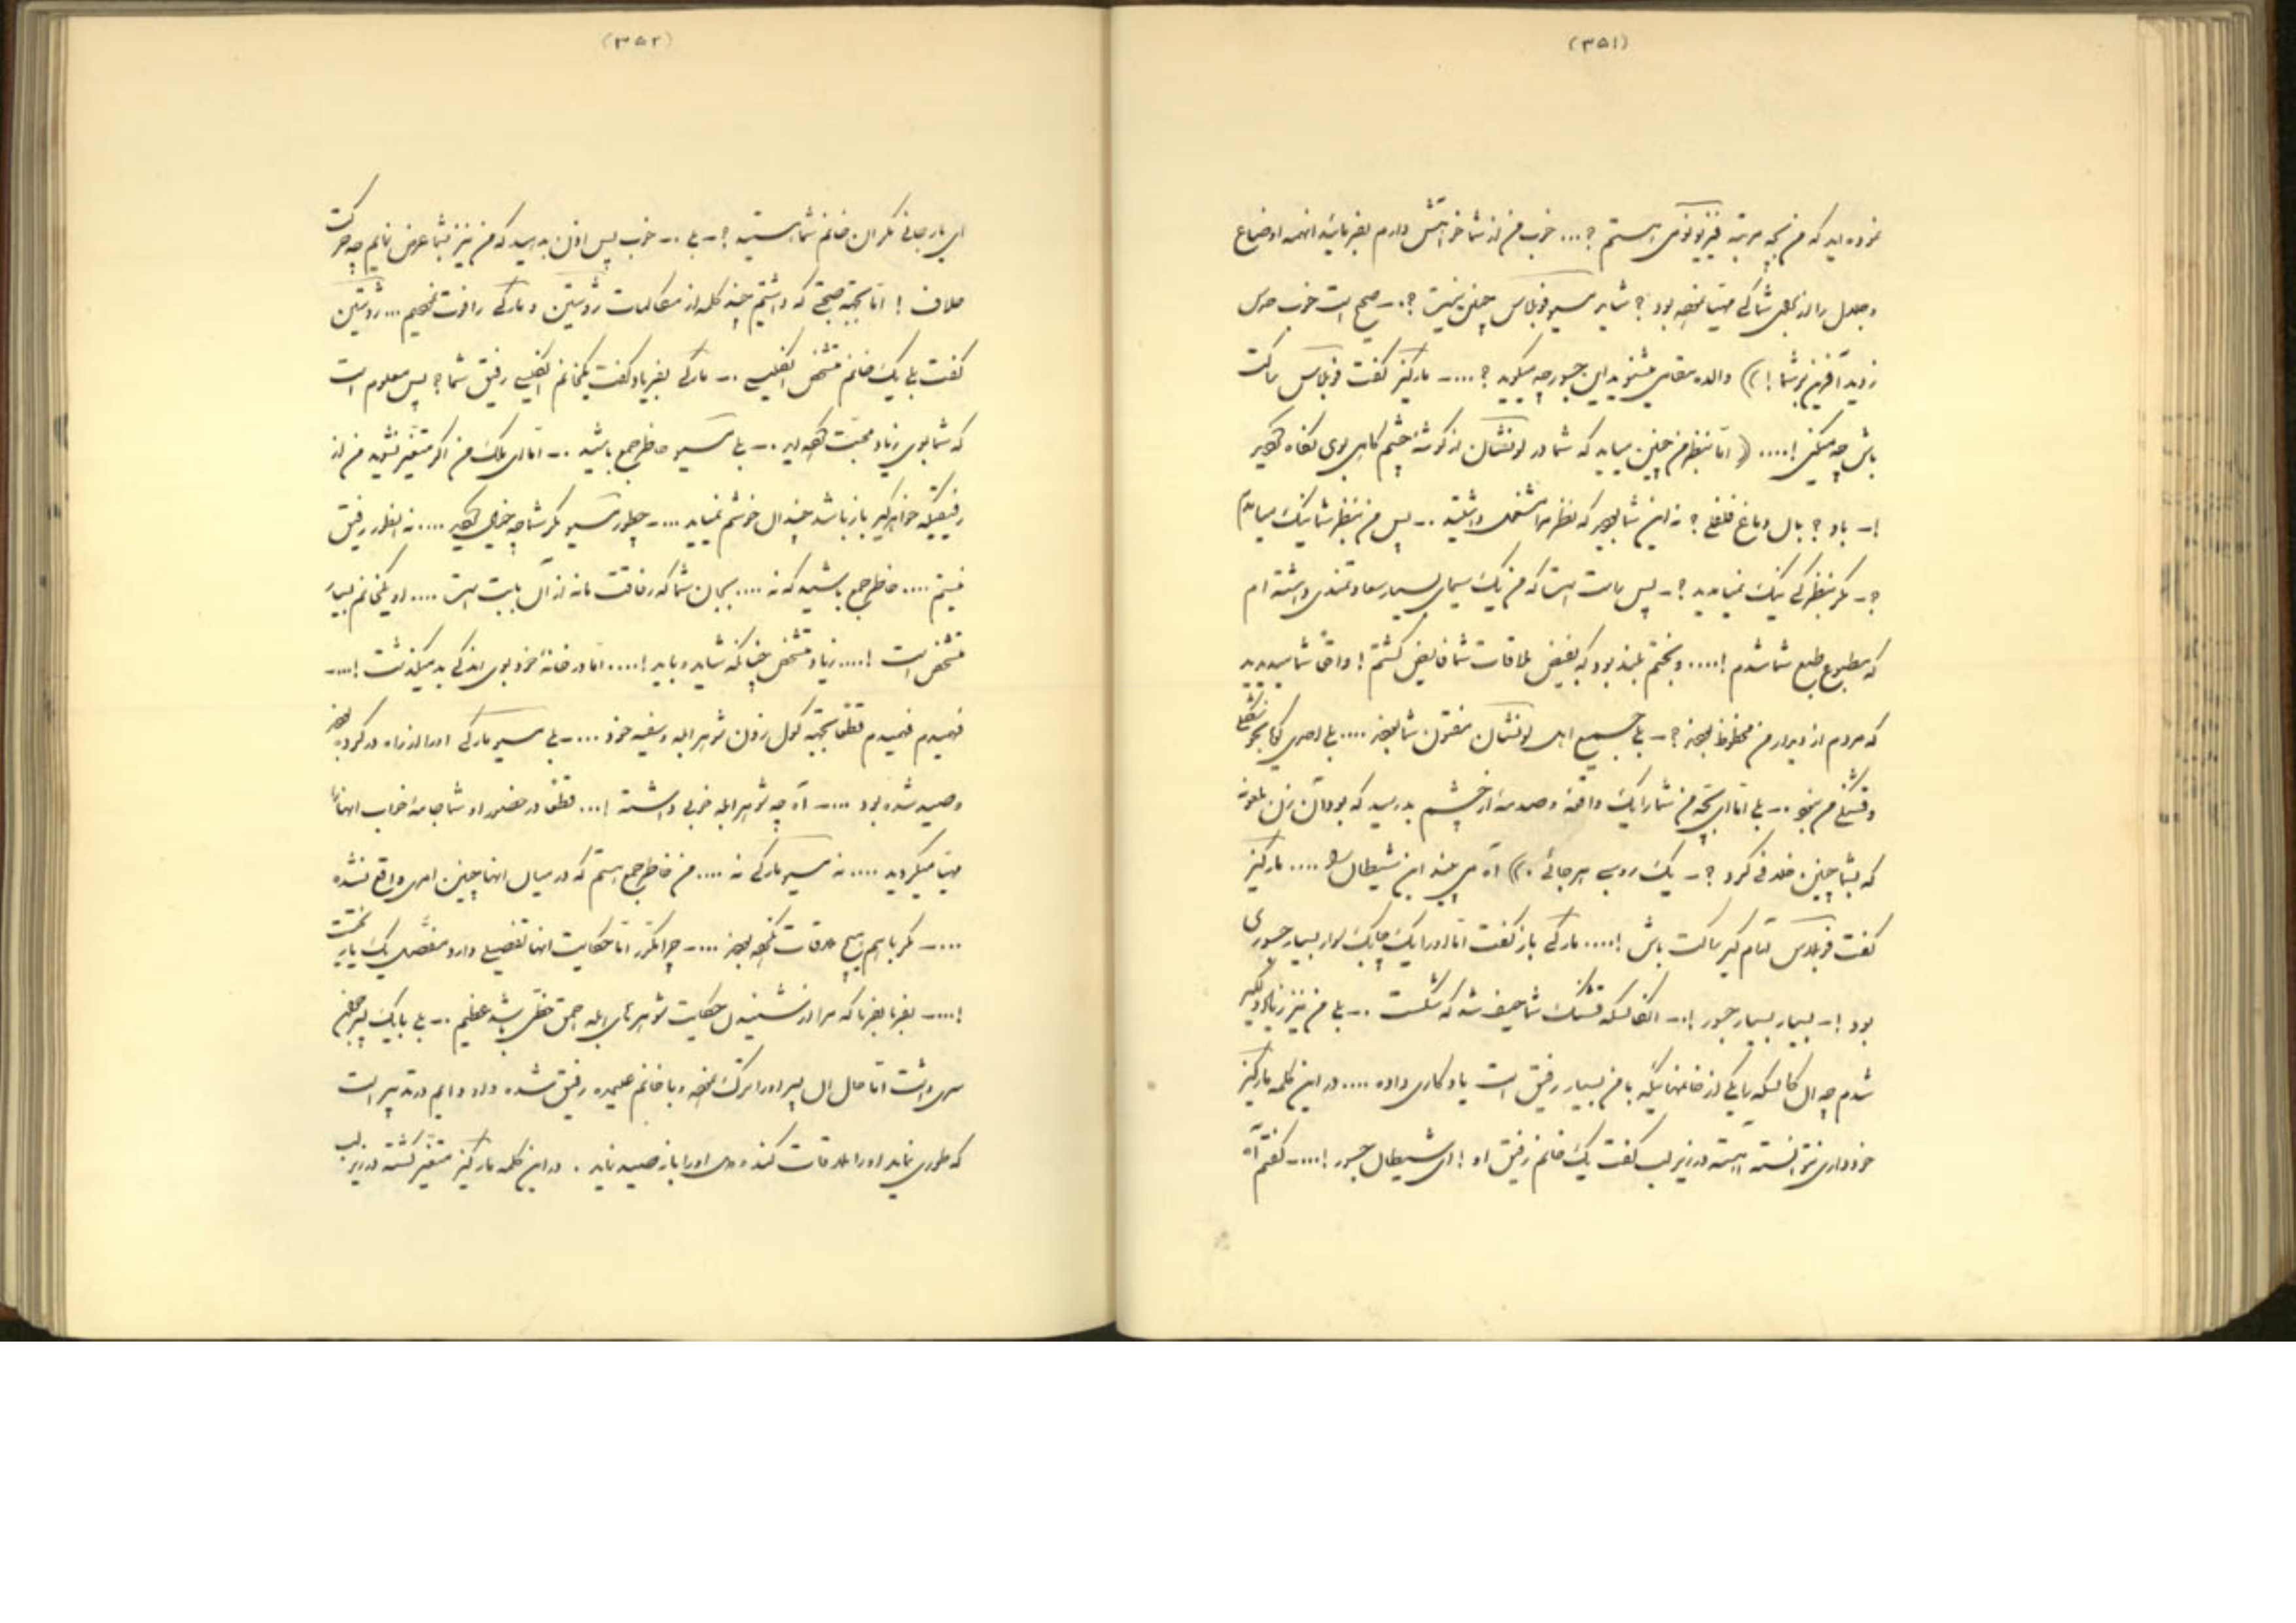 (۳۵۱)
نموده اید که من بچه مرتبه فیزیونومی هستم ؟ ... خوب من از شما خواهش دارم بفرمائید اینهمه اوضاع
و جلال را از برای شما کی مهیا نموده بود ؟ شاید مسیو فوبلاس چنین نیست ؟ .- صحیح است خوب حدس
زدید آفرین بر شما ! ) والده مقدس میشنوید این جسور چه میگوید ؟ .... - مارکیز گفت فوبلاس ساکت
باش چه میکنی ! .... ( اما بنظر من چنین میاید که شما در لونشان از گوشه چشم گاهی بوی نگاه میکردید
! - باو ؟ بآن دماغ فلفلی ؟ نه این شما بودید که نظر مرا مشغول داشتید .- پس من بنظر شما نیک میآمدم
؟ - مگر بنظر کی نیک نمیآمدید ؟ - پس راست است که من یک سیمای بسیار سعادتمندی داشته ام
که مطبوع طبع شما شدم ! .... و بختم بلند بود که بفیض ملاقات شما فایض گشتم ! واقعاً شما میدیدید
که مردم از دیدار من محظوظ بودند ؟ - بلی جمیع اهل لونشان مفتون شما بودند .... بلی
.- بلی اما ای بچه من شما را یک واقعه و صدمه از چشم بد رسید که بود آن زن ملعونه
که بشما چنین خدعه کرد ؟ - یک روسپی هرجائی . ) آه می بینید این شیطان را .... مارکیز
گفت فوبلاس آرام گیر ساکت باش ! .... مارکی باز گفت اما او را یک چابک سوار بسیار جسوری
بود ! - بسیار بسیار جسور ! .- کالسکه قشنگ شما حیف شد که شکست .- بلی من نیز زیاد دلگیر
شدم چه آن کالسکه را یکی از خانمهائیکه با من بسیار رفیق است یادگاری داده .... در این کلمه مارکیز
خودداری نتوانسته آهسته در زیر لب گفت یک خانم رفیق او ! ای شیطان جسور ! .... - گفتم آه
(۳۵۲)
ای یار جانی نگران خانم شما هستید ؟ - بلی .- خوب پس اذن بدهید که من نیز بشما عرض نمایم چه حرکت
خلاف ! اما بجهة صحبتی که داشتیم چند کلمه از مکالمات ژوستین و مارکی را فوت نمودیم ... ژوستین
گفت بلی یک خانم مشخص انگلیسی .- مارکی بفریاد گفت یکخانم انگلیسی رفیق شما ؟ پس معلوم است
که شما بوی زیاد محبت کرده اید .- بلی مسیو خاطر جمع باشید .- اما ای ملک من اگر متغیر نشوید من از
رفیقیکه خواهرگیر باز باشد چندان خوشم نمیاید .... - چطور مسیو مگر شما چه خیال میکنید .... نه اینطور رفیق
نیستم .... خاطر جمع باشید که نه .... بجان شما که رفاقت ما نه از آن بابت است .... او یکخانم بسیار
مشخص است ! .... زیاد مشخص چنانکه شاید و باید ! .... اما در خانه خود بوی اندکی بد میگذشت ! .... -
فهمیدم فهمیدم قطعاً بجهة گول زدن شوهر ابله و سفیه خود .... - بلی مسیو مارکی او را از راه در کرده بودند
و صید شده بود .... - آه چه شوهر ابله خوبی داشته ! ... قطعاً در حضور او شما جامه خواب آنها را
مهیا میکردید .... نه مسیو مارکی نه .... من خاطر جمع هستم که در میان آنها چنین امری واقع نشده
.... - مگر با هم هیچ ملاقات نکرده بودند .... - چرا مکرر اما حکایت آنها تفصیلی دارد مفصل یک یار نخست
! .... - بفرما بفرما که مرا از شنیدن حکایت شوهرهای ابله احمق حظی باشد عظیم .- بلی با یک پسر جوانی
سری داشت اما حال آن پسر او را ترک نموده و با خانم علیحده رفیق شده و او دایم در تدبیر است
که طوری نماید او را ملاقات کند و دل او را باز صید نماید . در این کلمه مارکیز متغیر گشته در زیر لب